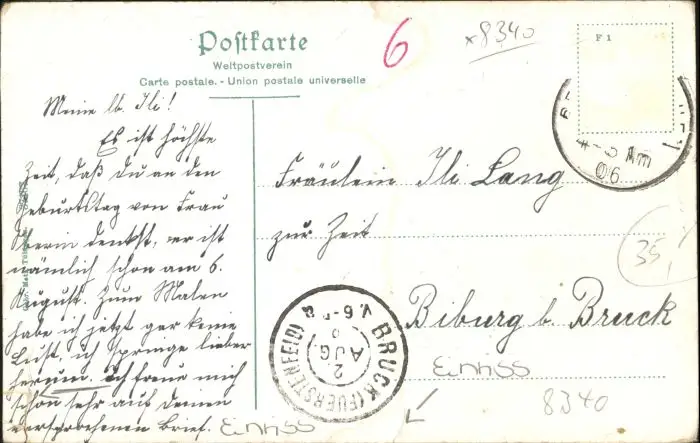 Postkarte
Weltpostverein
Carte postale. - Union postale universelle
6
x8340
F 1
Meine lb. Ili!
Es ist höchste
Zeit, daß du an den
Geburtstag von Frau
Oberin denkst, er ist
nämlich schon am 6.
August. Zum Malen
habe ich jetzt gar keine
Lust, ich springe lieber
herum. Ich freue mich
schon sehr auf deinen
versprochenen Brief.
4-5 Nm
06
Fräulein Ili Lang
zur Zeit
Biburg b. Bruck
35,
BRUCK (FUERSTENFELD)
2
AUG
Einriss
8340
Einriss